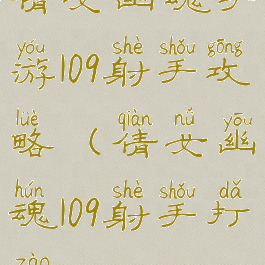 yóu shè shǒu gōng
游109射手攻
lüè qiàn nǚ yōu
略（倩女幽
hún shè shǒu dǎ
魂109射手打